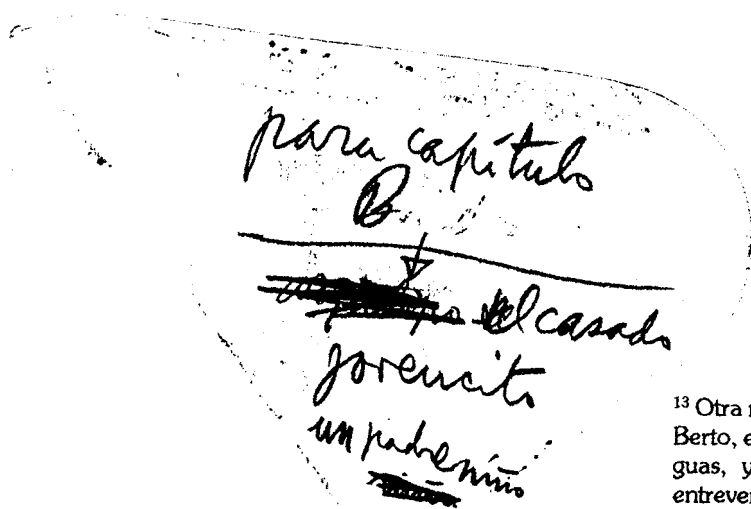 para capítulo
B
el casado
jovencito
un padre niño
13 Otra
Berto, e
guas, y
entrever